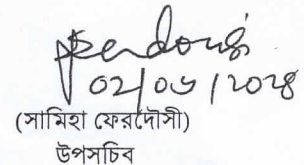 ০২/০৬/২০২৪
(সামিহা ফেরদৌসী)
উপসচিব